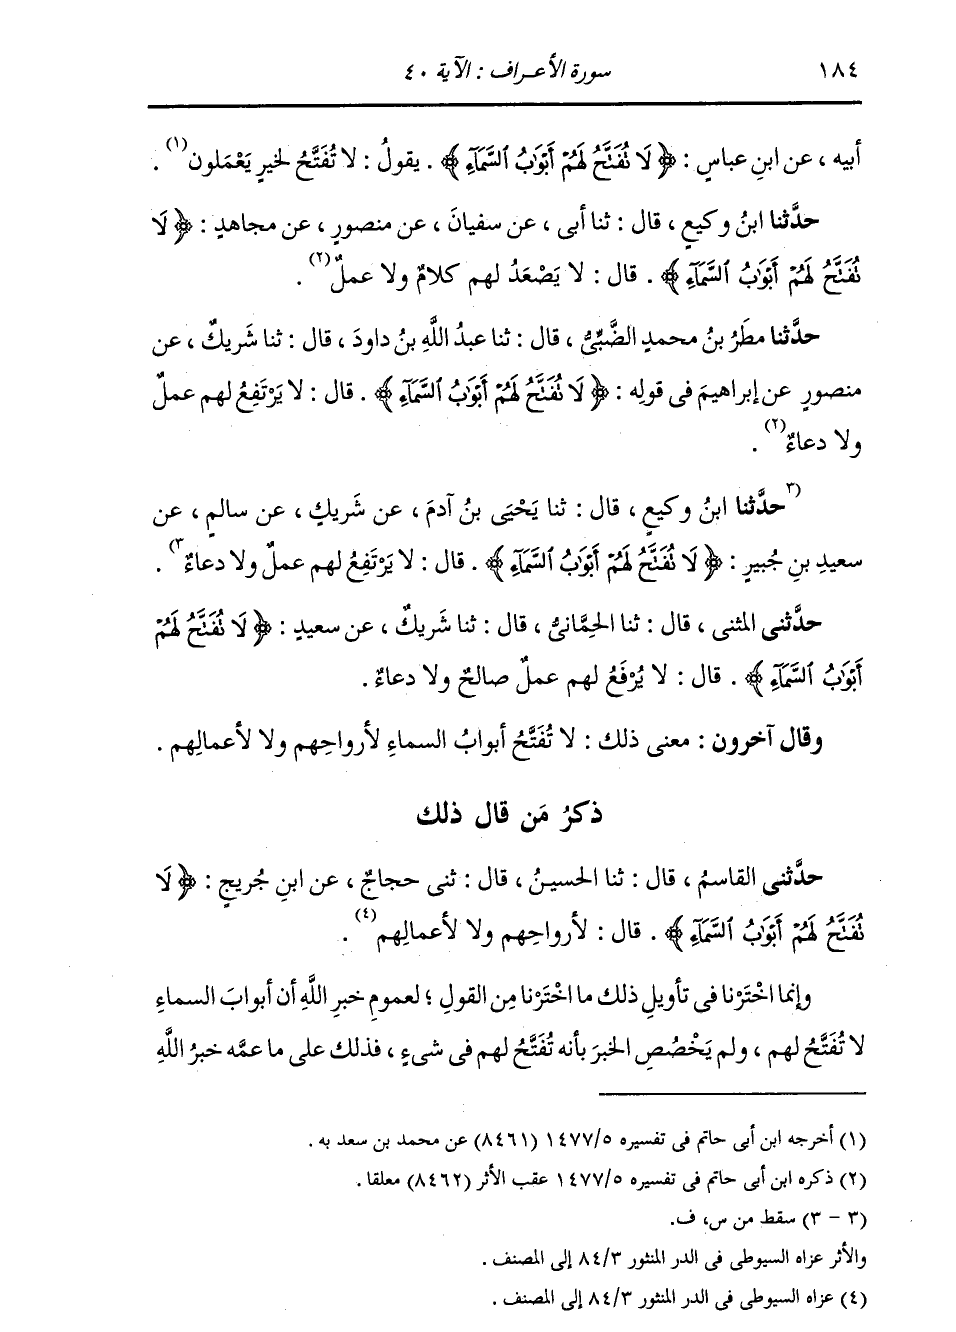 ١٨٤ سورة الأعراف : الآية ٤٠
أبيه ، عن ابنِ عباسٍ : ﴿ لَا تُفَتَّحُ لَهُمْ أَبْوَٰبُ ٱلسَّمَآءِ ﴾ . يقولُ : لا تُفَتَّحُ لخيرٍ يَعْمَلون(١) .
حدَّثنا ابنُ وكيعٍ ، قال : ثنا أبى ، عن سفيانَ ، عن منصورٍ ، عن مجاهدٍ : ﴿ لَا
تُفَتَّحُ لَهُمْ أَبْوَٰبُ ٱلسَّمَآءِ ﴾ . قال : لا يَصْعَدُ لهم كلامٌ ولا عملٌ(٢) .
حدَّثنا مطَرُ بنُ محمدٍ الضَّبِّىُّ ، قال : ثنا عبدُ اللَّهِ بنُ داودَ ، قال : ثنا شَريكٌ ، عن
منصورٍ عن إبراهيمَ فى قولِه : ﴿ لَا تُفَتَّحُ لَهُمْ أَبْوَٰبُ ٱلسَّمَآءِ ﴾ . قال : لا يَرْتَفِعُ لهم عملٌ
ولا دعاءٌ(٢) .
(٣حدَّثنا ابنُ وكيعٍ ، قال : ثنا يَحْيَى بنُ آدمَ ، عن شَريكٍ ، عن سالمٍ ، عن
سعيدِ بنِ جُبيرٍ : ﴿ لَا تُفَتَّحُ لَهُمْ أَبْوَٰبُ ٱلسَّمَآءِ ﴾ . قال : لا يَرْتَفِعُ لهم عملٌ ولا دعاءٌ٣) .
حدَّثنى المثنى ، قال : ثنا الحِمَّانىُّ ، قال : ثنا شَريكٌ ، عن سعيدٍ : ﴿ لَا تُفَتَّحُ لَهُمْ
أَبْوَٰبُ ٱلسَّمَآءِ ﴾ . قال : لا يُرْفَعُ لهم عملٌ صالحٌ ولا دعاءٌ .
وقال آخرون : معنى ذلك : لا تُفَتَّحُ أبوابُ السماءِ لأرواحِهم ولا لأعمالِهم .
ذكرُ مَن قال ذلك
حدَّثنى القاسمُ ، قال : ثنا الحسينُ ، قال : ثنى حجاجٌ ، عن ابنِ جُريجٍ : ﴿ لَا
تُفَتَّحُ لَهُمْ أَبْوَٰبُ ٱلسَّمَآءِ ﴾ . قال : لأرواحِهم ولا لأعمالِهم(٤) .
وإنما اخْتَرْنا فى تأويلِ ذلك ما اخْتَرْنا مِن القولِ ؛ لعمومِ خبرِ اللَّهِ أن أبوابَ السماءِ
لا تُفَتَّحُ لهم ، ولم يَخْصُصِ الخبرَ بأنه تُفَتَّحُ لهم فى شىءٍ ، فذلك على ما عمَّه خبرُ اللَّهِ
(١) أخرجه ابن أبى حاتم فى تفسيره ١٤٧٧/٥ (٨٤٦١) عن محمد بن سعد به .
(٢) ذكره ابن أبى حاتم فى تفسيره ١٤٧٧/٥ عقب الأثر (٨٤٦٢) معلقا .
(٣ - ٣) سقط من س، ف.
والأثر عزاه السيوطى فى الدر المنثور ٨٤/٣ إلى المصنف .
(٤) عزاه السيوطى فى الدر المنثور ٨٤/٣ إلى المصنف .